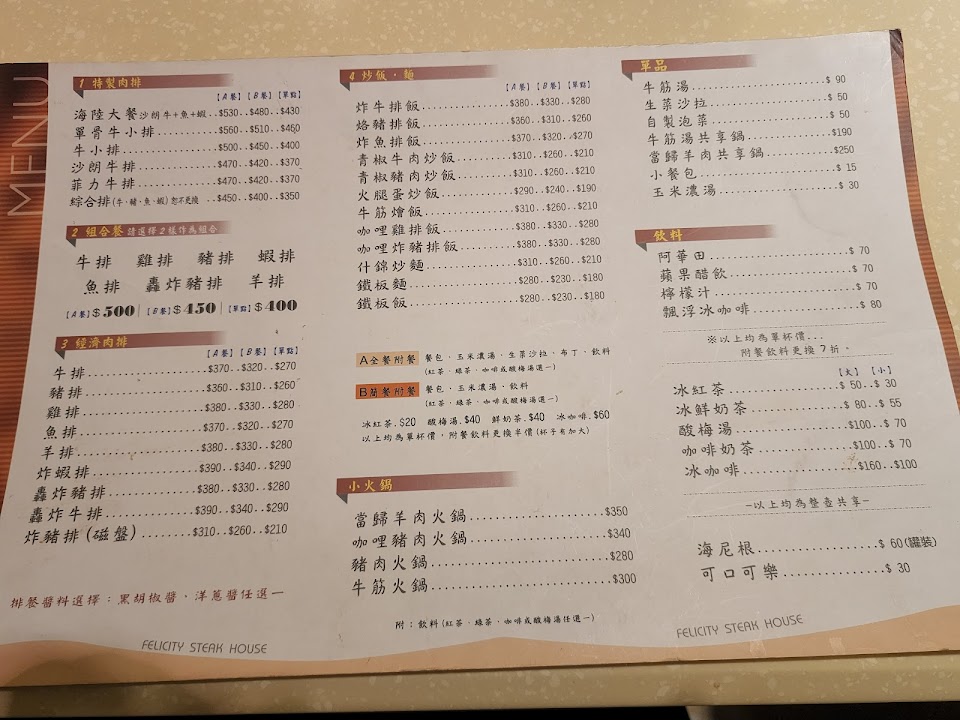 MENU
1 特製肉排
【A餐】【B餐】【單點】
海陸大餐 沙朗牛+魚+蝦..$530..$480..$430
單骨牛小排............$560..$510..$460
牛小排............$500..$450..$400
沙朗牛排............$470..$420..$370
菲力牛排............$470..$420..$370
綜合排(牛、豬、魚、蝦)恕不更換 ..$450..$400..$350
2 組合餐 請選擇2樣作為組合
牛排 雞排 豬排 蝦排
魚排 轟炸豬排 羊排
【A餐】$500|【B餐】$450|【單點】$400
3 經濟肉排
【A餐】【B餐】【單點】
牛排............$370..$320..$270
豬排............$360..$310..$260
雞排............$380..$330..$280
魚排............$370..$320..$270
羊排............$380..$330..$280
炸蝦排............$390..$340..$290
轟炸豬排............$380..$330..$280
轟炸牛排............$390..$340..$290
炸豬排(磁盤)........$310..$260..$210
排餐醬料選擇：黑胡椒醬、洋蔥醬任選一
FELICITY STEAK HOUSE
4 炒飯、麵
【A餐】【B餐】【單點】
炸牛排飯............$380..$330..$280
烙豬排飯............$360..$310..$260
炸魚排飯............$370..$320..$270
青椒牛肉炒飯........$310..$260..$210
青椒豬肉炒飯........$310..$260..$210
火腿蛋炒飯..........$290..$240..$190
牛筋燴飯............$310..$260..$210
咖哩雞排飯..........$380..$330..$280
咖哩炸豬排飯........$380..$330..$280
什錦炒麵............$310..$260..$210
鐵板麵............$280..$230..$180
鐵板飯............$280..$230..$180
A全餐附餐 餐包、玉米濃湯、生菜沙拉、布丁、飲料
(紅茶、綠茶、咖啡或酸梅湯選一)
B簡餐附餐 餐包、玉米濃湯、飲料
(紅茶、綠茶、咖啡或酸梅湯選一)
冰紅茶.$20 酸梅湯.$40 鮮奶茶.$40 冰咖啡.$60
以上均為單杯價，附餐飲料更換半價(杯子有加大)
小火鍋
當歸羊肉火鍋............$350
咖哩豬肉火鍋............$340
豬肉火鍋............$280
牛筋火鍋............$300
附：飲料(紅茶、綠茶、咖啡或酸梅湯任選一)
單品
牛筋湯............$ 90
生菜沙拉............$ 50
自製泡菜............$ 50
牛筋湯共享鍋............$190
當歸羊肉共享鍋............$250
小餐包............$ 15
玉米濃湯............$ 30
飲料
阿華田............$ 70
蘋果醋飲............$ 70
檸檬汁............$ 70
飄浮冰咖啡............$ 80
※以上均為單杯價...
附餐飲料更換7折。
【大】【小】
冰紅茶............$ 50..$ 30
冰鮮奶茶............$ 80..$ 55
酸梅湯............$100..$ 70
咖啡奶茶............$100..$ 70
冰咖啡............$160..$100
–以上均為整壺共享–
海尼根............$ 60(罐裝)
可口可樂............$ 30
FELICITY STEAK HOUSE